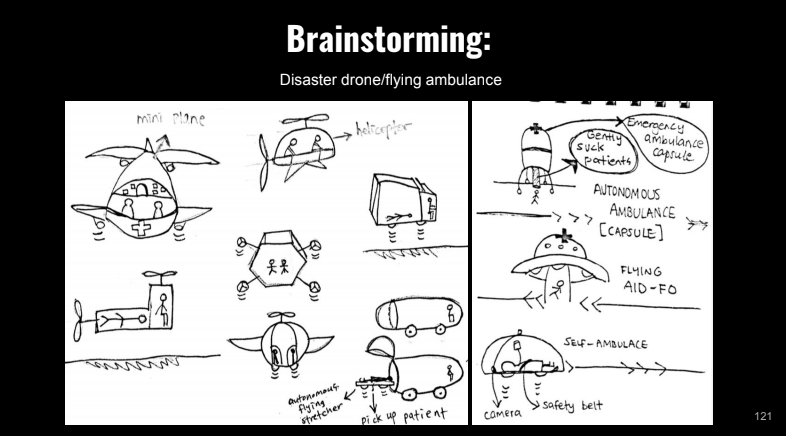 Brainstorming:
Disaster drone/flying ambulance
mini Plane
helicopter
autonomous
flying
stretcher
pick up patient
Emergency
ambulance
capsule
Gently
suck
patients
AUTONOMOUS
AMBULANCE
[CAPSULE]
FLYING
AID-FO
SELF-AMBULACE
camera
safety belt
121